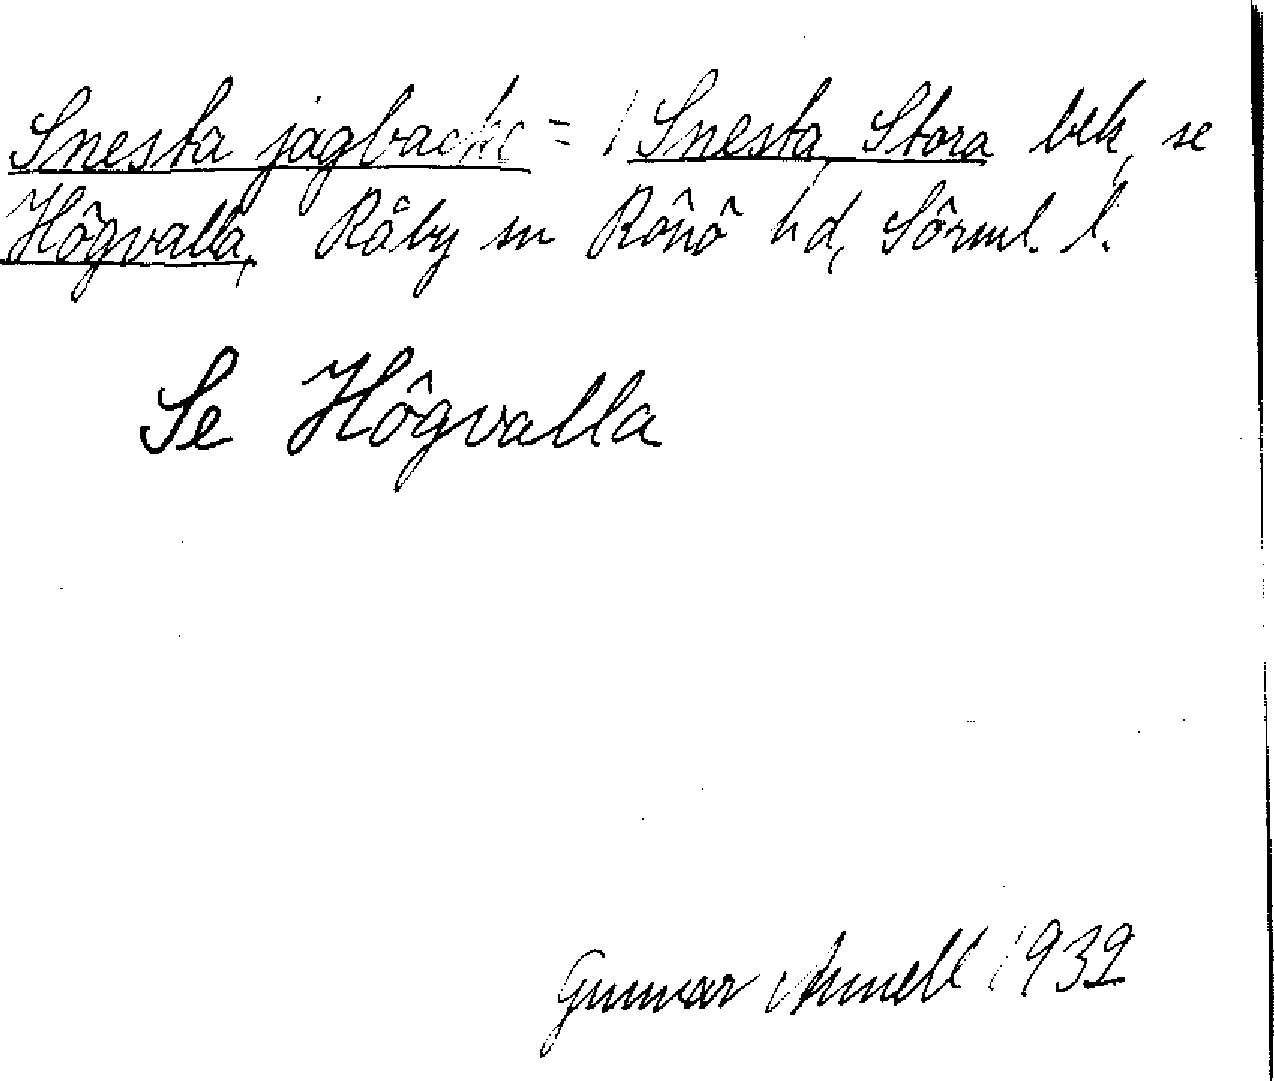 Snesta jagbacke = / Snesta, Stora bek, se
Högvalla, Råby sn Rönö hd, Sörml. l.
Se Högvalla
Gunnar 1932